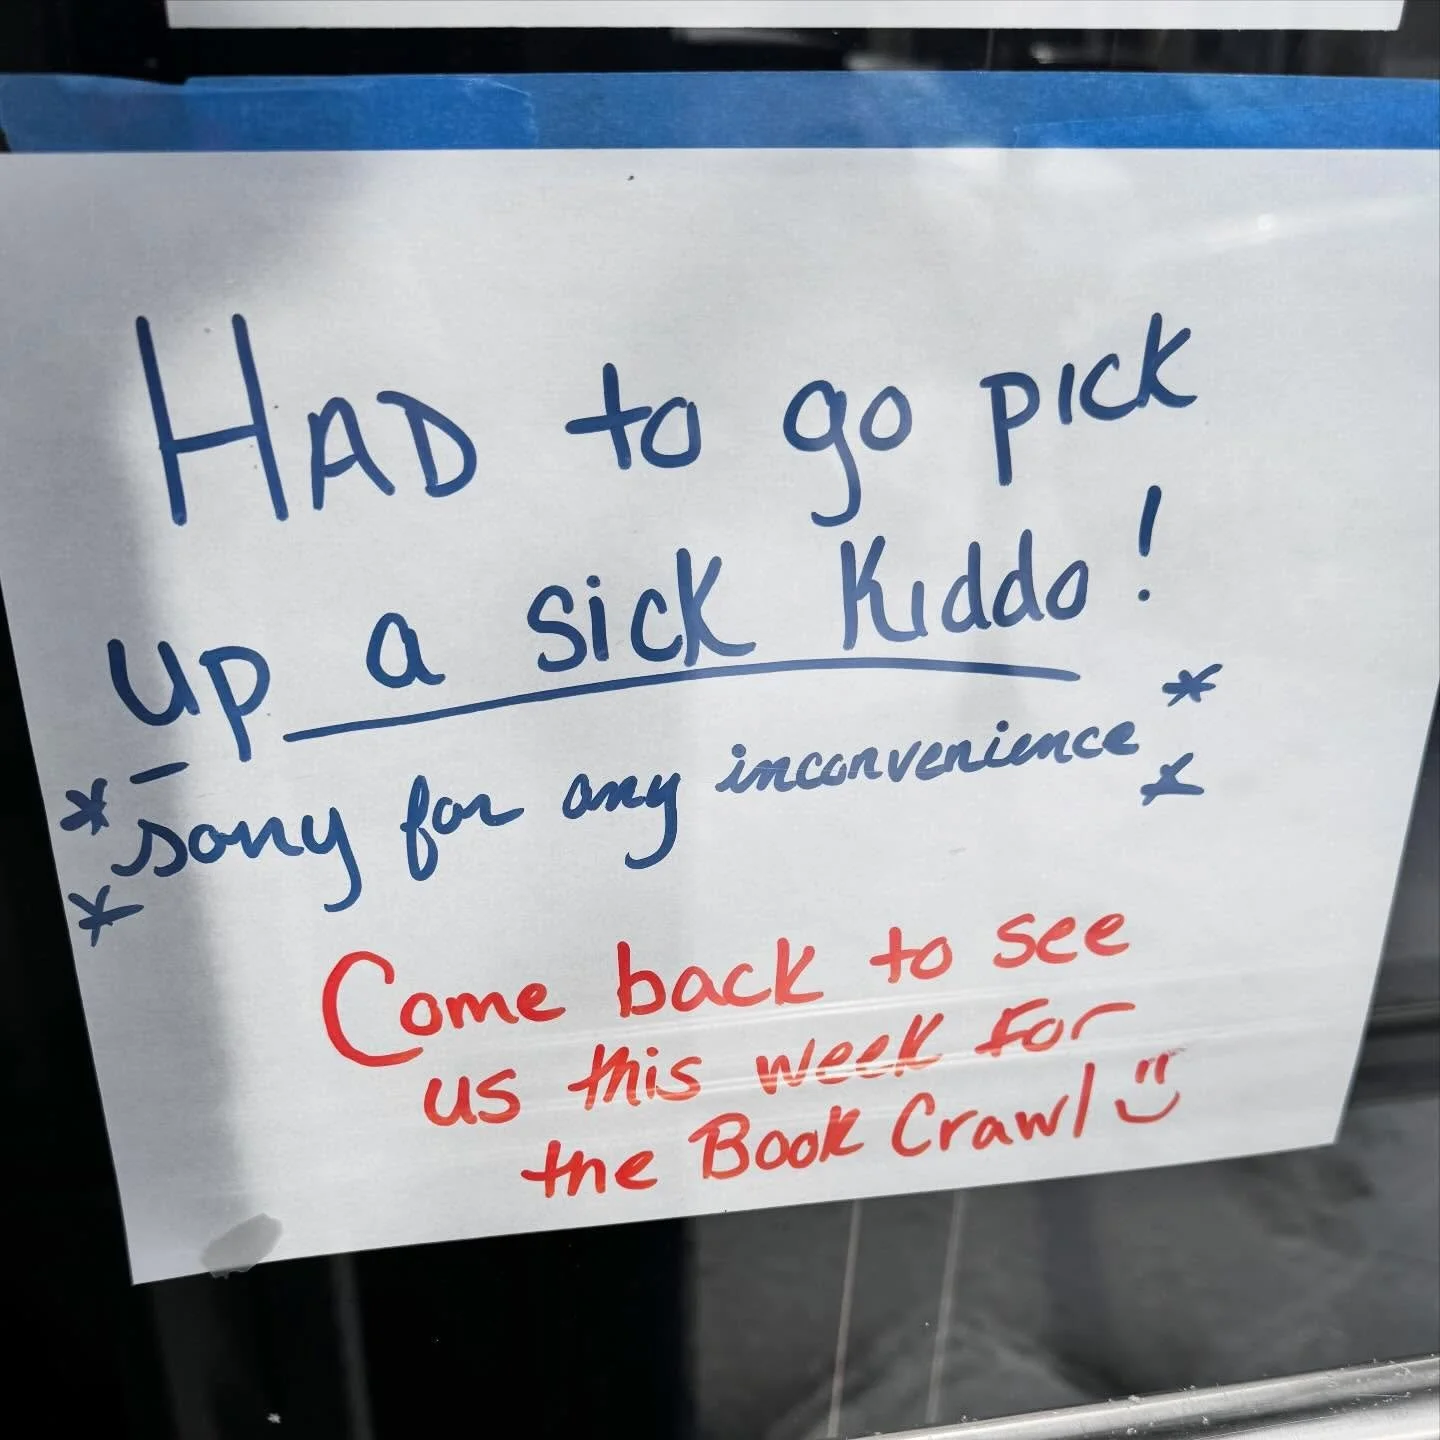 HAD to go pick
up a sick Kiddo!
*sorry for any inconvenience*
* *
Come back to see
us this week for
the Book Crawl